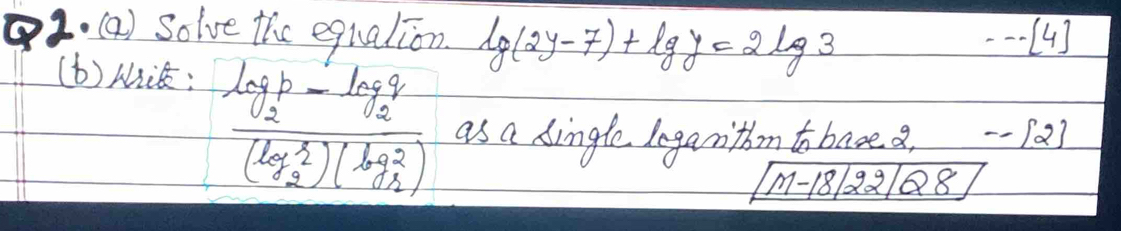 Q2. (a) Solve the equation. lg(2y-7) + lg y = 2 lg 3 ---[4]
(b) Write: (log₂p - log₂q) / ((log₂r)(log_r 2)) as a single logarithm to base 2. --[2]
M-18/22/Q8